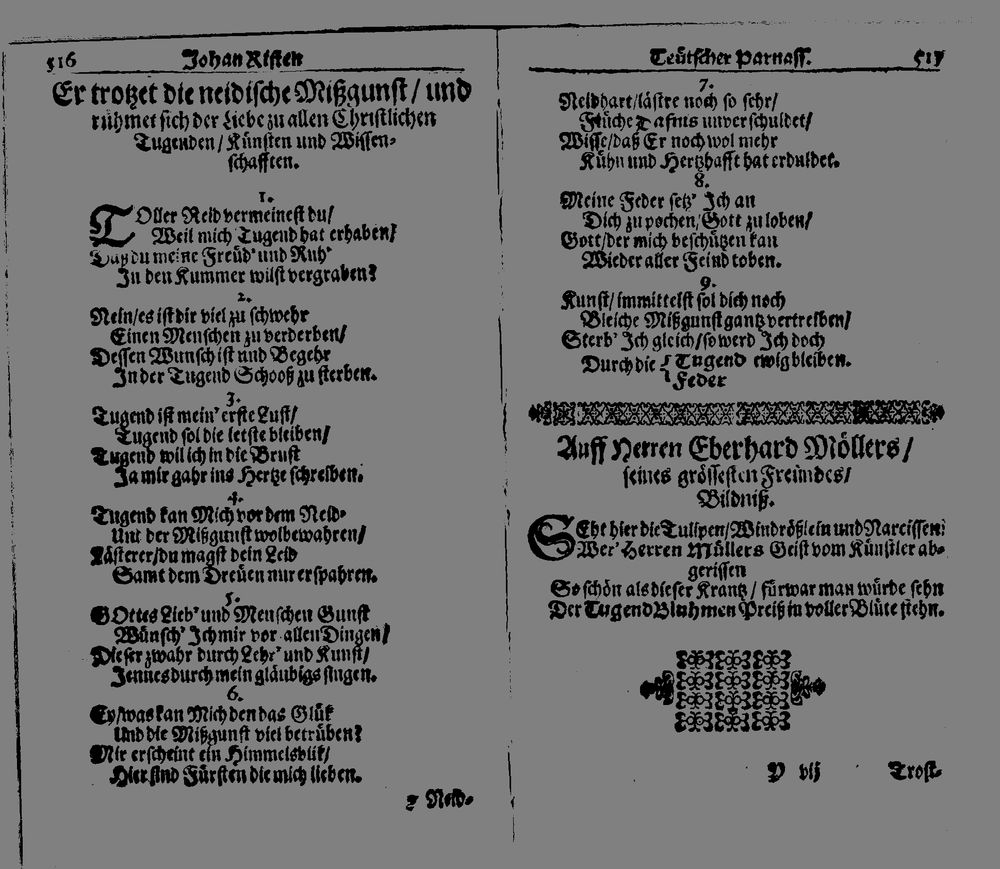 516 Johan Risten
Er trotzet die neidische Mißgunst / und
rühmet sich der Liebe zu allen Christlichen
Tugenden / Künsten und Wissen-
schafften.
1.
TOller Neid vermeinest du /
Weil mich Tugend hat erhaben /
Daß du meine Freüd' und Ruh'
In den Kummer wilst vergraben?
2.
Nein / es ist dir viel zu schwehr
Einen Menschen zu verderben /
Dessen Wunsch ist und Begehr
In der Tugend Schooß zu sterben.
3.
Tugend ist mein' erste Lust /
Tugend sol die letste bleiben /
Tugend wil ich in die Brust
Ja mir gahr ins Hertze schreiben.
4.
Tugend kan Mich vor dem Neid-
Unt der Mißgunst wolbewahren /
Lästerer / du magst dein Leid
Samt dem Dreüen nur erspahren.
5.
GOttes Lieb' und Menschen Gunst
Wünsch' Ich mir vor allen Dingen /
Dieser zwahr durch Lehr' und Kunst /
Jennes durch mein gläubigs singen.
6.
Ey / was kan Mich den das Glük
Und die Mißgunst viel betrüben?
Mir erscheint ein Himmelsblik /
Hier sind Fürsten die mich lieben.
7 Neid-
Teütscher Parnass. 517
7.
Neidhart / lästre noch so sehr /
Flüche Dafnis unverschuldet /
Wisse / daß Er noch wol mehr
Kühn und Hertzhafft hat erduldet.
8.
Meine Feder setz' Ich an
Dich zu pochen / Gott zu loben /
Gott / der mich beschützen kan
Wieder aller Feind toben.
9.
Kunst / immittelst sol dich noch
Bleiche Mißgunst gantz vertreiben /
Sterb' Ich gleich / so werd Ich doch
Durch die { Tugend ewig bleiben.
Feder
Auff Herren Eberhard Möllers /
seines grössesten Freündes /
Bildniß.
SEht hier die Tulipen / Windrößlein und Narcissen:
Wer' Herren Müllers Geist vom Künstler ab-
gerissen
So schön als dieser Krantz / fürwar man würde sehn
Der Tugend Bluhmen Preiß in voller Blüte stehn.
Y vij Trost-